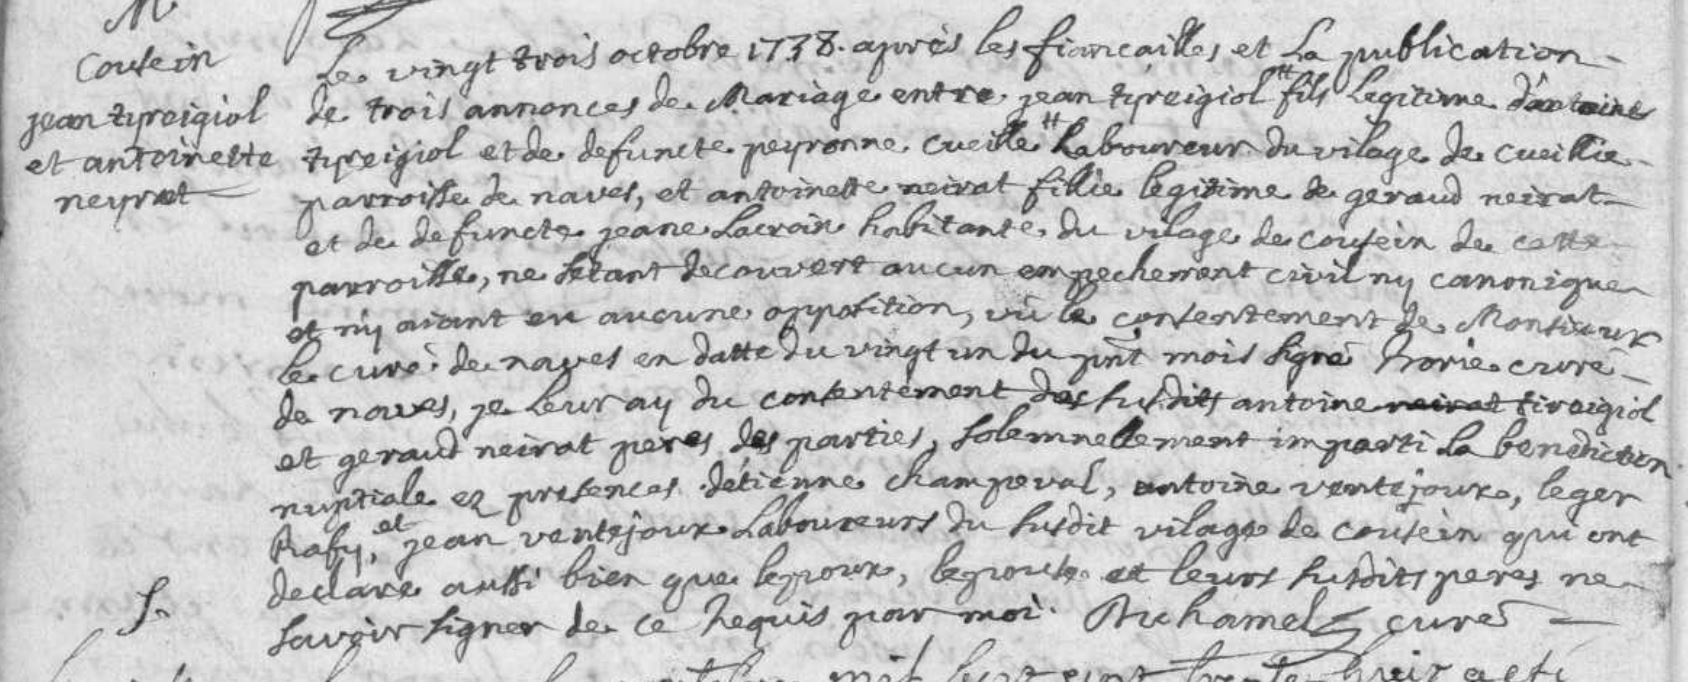 M
Cousein
jean tyreigiol
et antoinette
neyrat
Le vingt trois octobre 1738. apres les fiancailles et La publication
de trois annonces de Mariage entre jean tyreigiol # fils Legitime d'antoine
tyreigiol et de defuncte peyronne cueille # Laboureur du vilage de cueillie
parroisse de naves, et antoinette neirat fillie legitime de geraud neirat
et de defuncte jeane Lacroix habitante du vilage de cousein de cette
parroisse, ne s'etant decouvert aucun empechement civil ny canonique
et n'y aiant eu aucune opposition, vû le consentement de Monsieur
le curé de naves en datte du vingt un du pnt mois signé curé
de naves, je leur ay du consentement des susdits antoine neirat tireigiol
et geraud neirat peres des parties, solemnellement imparti La benediction
nuptiale ez presences d'etienne champeval, antoine ventejoux, leger
Rafy, et jean ventejoux Laboureurs du susdit vilage de cousein qui ont
declare aussi bien que lepoux, lepouse et leurs susdits peres ne
savoir signer de ce requis par moi. Duchamel curé
f.
mil sept cent trente huit a eté